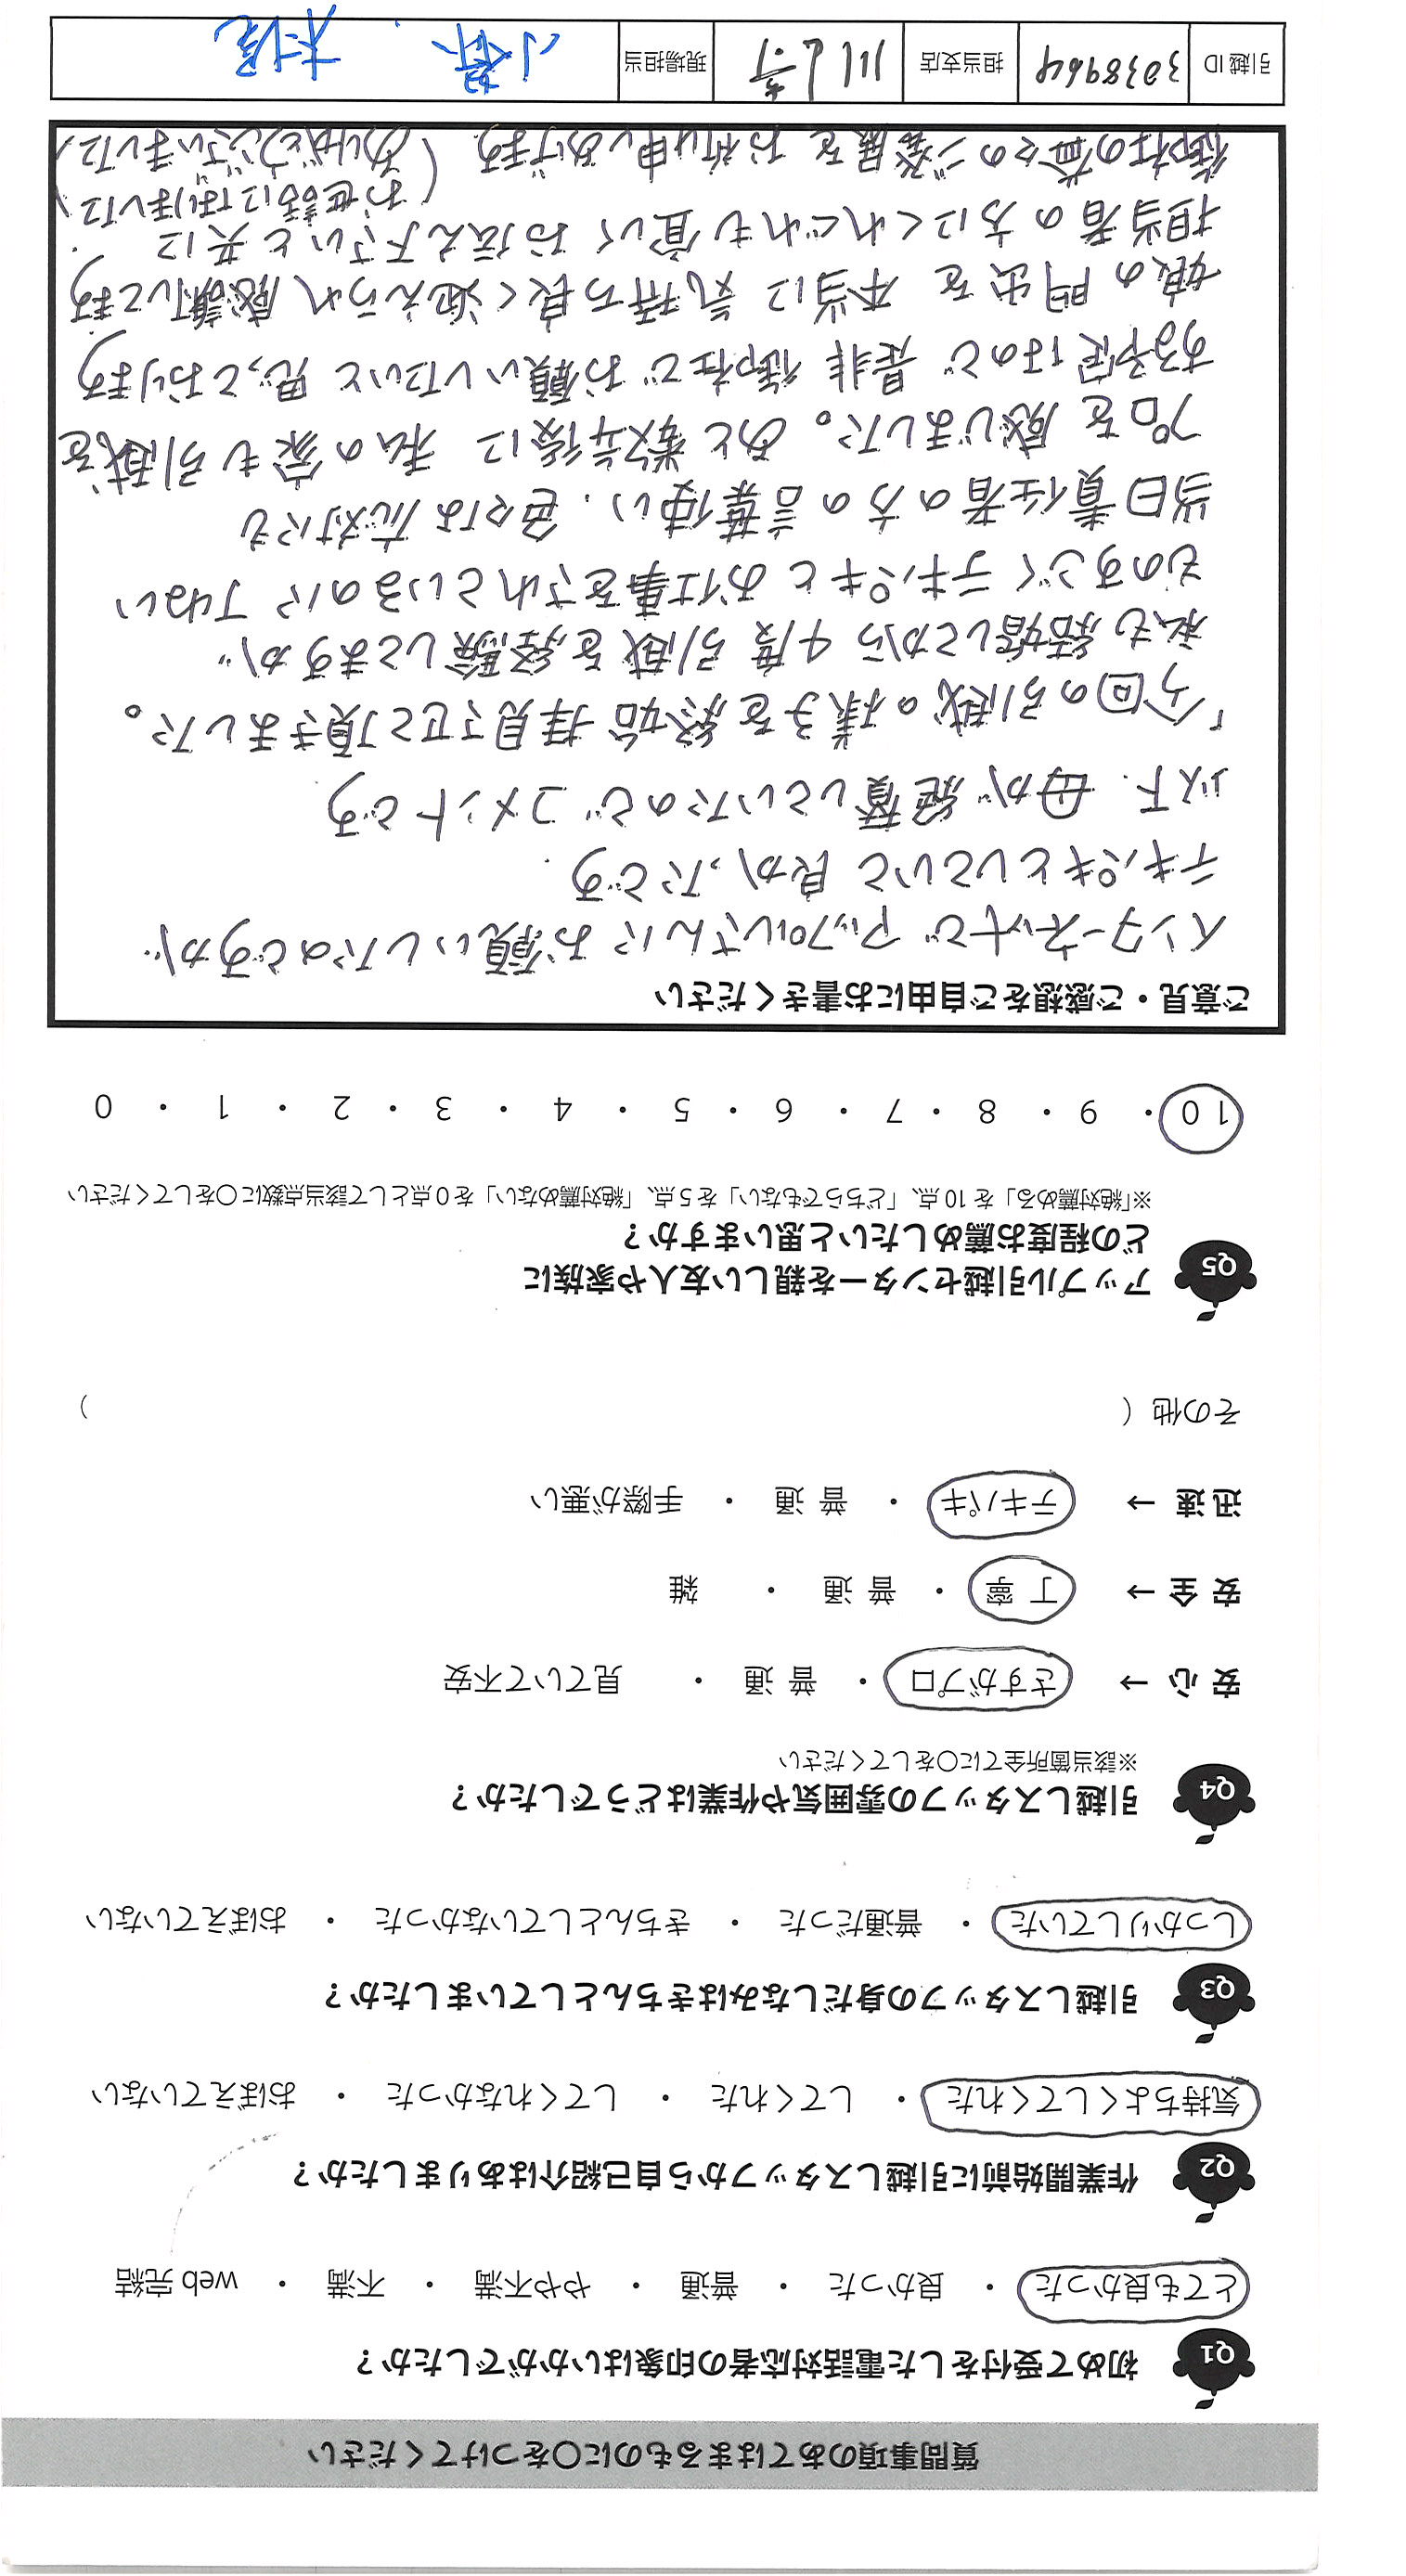 質問事項のあてはまるものに○をつけてください
Q1 初めて受付をした電話対応者の印象はいかがでしたか？
とても良かった ・ 良かった ・ 普通 ・ やや不満 ・ 不満 ・ web 完結
Q2 作業開始前に引越しスタッフから自己紹介はありましたか？
気持ちよくしてくれた ・ してくれた ・ してくれなかった ・ おぼえていない
Q3 引越しスタッフの身だしなみはきちんとしていましたか？
しっかりしていた ・ 普通だった ・ きちんとしていなかった ・ おぼえていない
Q4 引越しスタッフの雰囲気や作業はどうでしたか？
※該当箇所全てに○をしてください
安 心 → さすがプロ ・ 普 通 ・ 見ていて不安
安 全 → 丁 寧 ・ 普 通 ・ 雑
迅 速 → テキパキ ・ 普 通 ・ 手際が悪い
その他（ ）
Q5 アップル引越センターを親しい友人や家族に
どの程度お薦めしたいと思いますか？
※「絶対薦める」を 10 点、「どちらでもない」を 5 点、「絶対薦めない」を 0 点として該当点数に○をしてください
10 ・ 9 ・ 8 ・ 7 ・ 6 ・ 5 ・ 4 ・ 3 ・ 2 ・ 1 ・ 0
ご意見・ご感想をご自由にお書きください
インターネットで アップルさんに お願いしたのですが
テキパキとしていて 良かったです.
以下. 母が 絶賛していたので コメントです
「今回の引越の様子を終始拝見させて頂きました。
私も結婚してから 4度 引越を経験してますが
ものすごく テキパキと お仕事をされているのに 丁ねい
当日責任者の方の言葉使い、色々な 応対にも
プロを感じました。あと 数年後に 私の家も引越を
する予定なので 是非 御社で お願いしたいと 思っております
娘の門出を 本当に 気持ち良く迎えられ 感謝してます
担当者の方にくれぐれも宜しく お伝え下さいと共に
御社の益々のご発展を お祈り申しあげます (お世話になりました
ありがとうございました)
引越 ID 3038964 担当支店 川崎 現場担当 小幡、